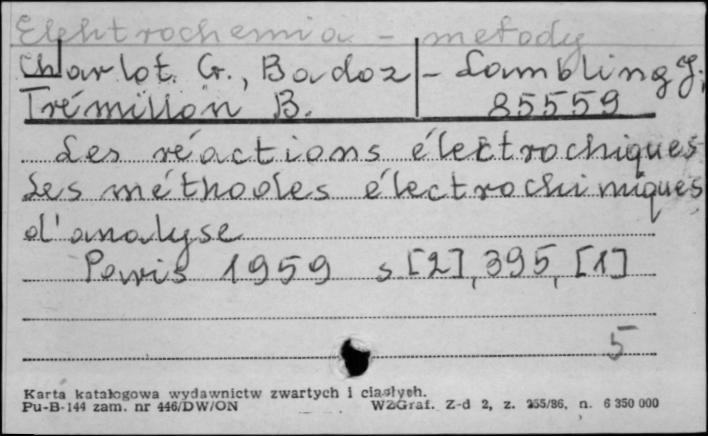 Elektrochemia - metody
Charlot G., Badoz - Lambling J;
Trémillon B. 85559
Les réactions électrochiques
Les méthodes électrochimiques
d'analyse
Paris 1959 s [2], 395, [1]
5
Karta katalogowa wydawnictw zwartych i ciągłych.
Pu-B-144 zam. nr 446/DW/ON WZGraf. Z-d 2, z. 255/86, n. 6 350 000